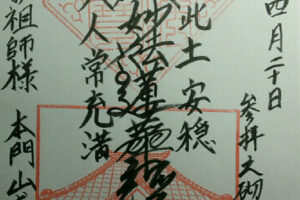 四月二十日
参拝大砌
此土安穏
妙法蓮華経
人常充満
祖師様
本門